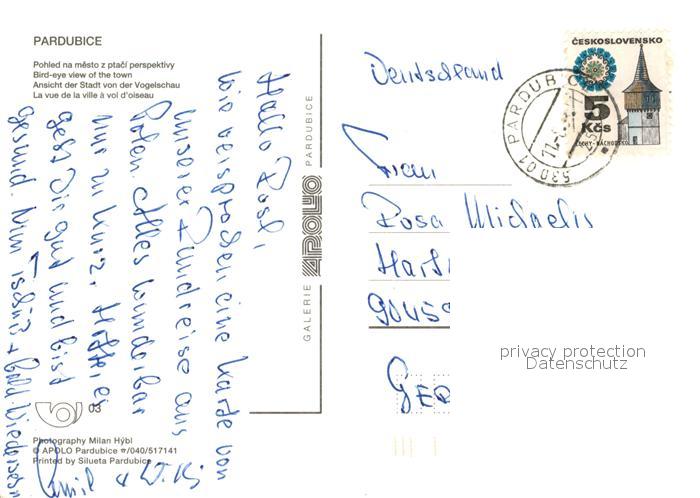 PARDUBICE
Pohled na město z ptačí perspektivy
Bird-eye view of the town
Ansicht der Stadt von der Vogelschau
La vue de la ville à vol d'oiseau
Hallo Rosl,
wie versprochen eine Karte von
unserer Rundreise aus
Polen. Alles wunderbar
nur zu kurz. Hoffe es
geht Dir gut und bist
gesund. Nun Tschüß + bald. Wiedersehn
Photography Milan Hýbl
© APOLO Pardubice ☎/040/517141
Printed by Silueta Pardubice
GALERIE APOLO PARDUBICE
ČESKOSLOVENSKO
5
Kčs
ČECHY-NÁCHODSKO
530 01 PARDUBIC
Deutschland
Frau
Rosa Michaelis
90459
privacy protection
Datenschutz